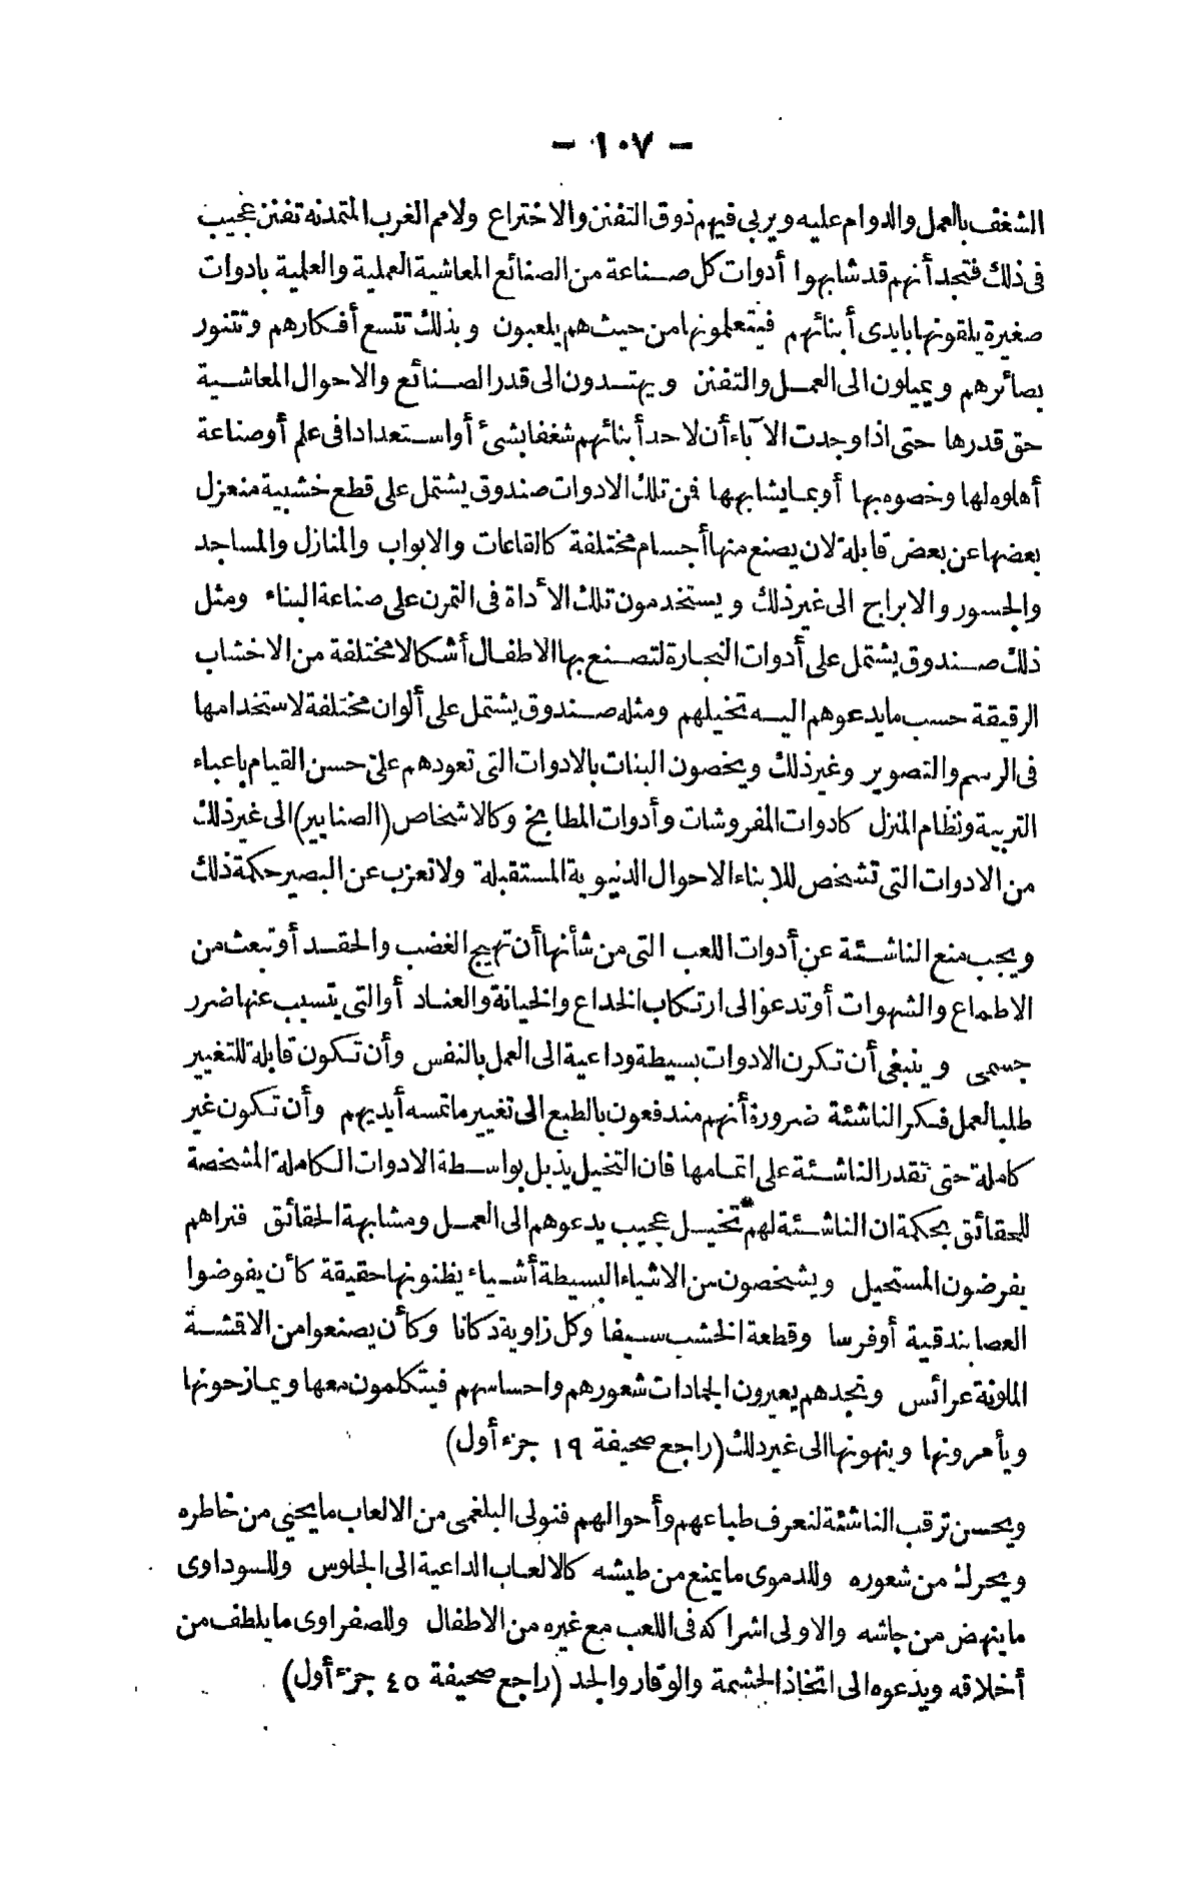 - ١٠٧ -
الشغف بالعمل والدوام عليه ويربى فيهم ذوق التفنن والاختراع ولامم الغرب المتمدنه تفنن عجيب
فى ذلك فتجد أنهم قد شابهوا أدوات كل صناعة من الصنائع المعاشية العملية والعلمية بادوات
صغيرة يلقونها بايدى أبنائهم فيتعلمونها من حيث هم يلعبون وبذلك تتسع أفكارهم وتتنور
بصائرهم ويميلون الى العمل والتفنن ويهتدون الى قدر الصنائع والاحوال المعاشية
حق قدرها حتى اذا وجدت الآباء أن لاحد أبنائهم شغفا بشئ أو استعدادا فى علم أو صناعة
أهلوه لها وخصوه بها أو بما يشابهها فمن تلك الادوات صندوق يشتمل على قطع خشبية منعزل
بعضها عن بعض قابلة لان يصنع منها أجسام مختلفة كالقاعات والابواب والمنازل والمساجد
والجسور والابراج الى غير ذلك ويستخدمون تلك الأداة فى التمرن على صناعة البناء ومثل
ذلك صندوق يشتمل على أدوات النجارة لتصنع بها الاطفال أشكالا مختلفة من الاخشاب
الرقيقة حسب ما يدعوهم اليه تخيلهم ومثله صندوق يشتمل على ألوان مختلفة لاستخدامها
فى الرسم والتصوير وغير ذلك ويخصون البنات بالادوات التى تعودهم على حسن القيام باعباء
التربية ونظام المنزل كادوات المفروشات وأدوات المطابخ وكالاشخاص (الصنايير) الى غير ذلك
من الادوات التى تشخص للابناء الاحوال الدنيوية المستقبلة ولا تعزب عن البصير حكمة ذلك
ويجب منع الناشئة عن أدوات اللعب التى من شأنها أن تهيج الغضب والحقد أو تبعث من
الاطماع والشهوات أو تدعو الى ارتكاب الخداع والخيانة والعناد أو التى يتسبب عنها ضرر
جسمى وينبغى أن تكرن الادوات بسيطة وداعية الى العمل بالنفس وأن تكون قابلة للتغيير
طلبا لعمل فكر الناشئة ضرورة أنهم مندفعون بالطبع الى تغيير ما تمسه أيديهم وأن تكون غير
كاملة حتى تقدر الناشئة على اتمامها فان التخيل يذبل بواسطة الادوات الكاملة المشخصة
للحقائق بحكمة ان الناشئة لهم تخيل عجيب يدعوهم الى العمل ومشابهة الحقائق فنراهم
يفرضون المستحيل ويشخصون من الاشياء البسيطة أشياء يظنونها حقيقة كأن يفوضوا
العصا بندقية أو فرسا وقطعة الخشب سيفا وكل زاوية دكانا وكأن يصنعوا من الاقشة
الملونة عرائس وتجدهم يعيرون الجمادات شعورهم واحساسهم فيتكلمون معها ويمازحونها
ويأمرونها وينهونها الى غير ذلك (راجع صحيفة ١٩ جزء أول)
ويحسن ترقب الناشئة لنعرف طباعهم وأحوالهم فنولى البلغمى من الالعاب ما يحيى من خاطره
ويحرك من شعوره وللدموى ما يمنع من طيشه كالالعاب الداعية الى الجلوس وللسوداوى
ما ينهض من جاشه والاولى اشراكه فى اللعب مع غيره من الاطفال وللصفراوى ما يلطف من
أخلاقه ويدعوه الى اتخاذ الحشمة والوقار والجد (راجع صحيفة ٤٥ جزء أول)